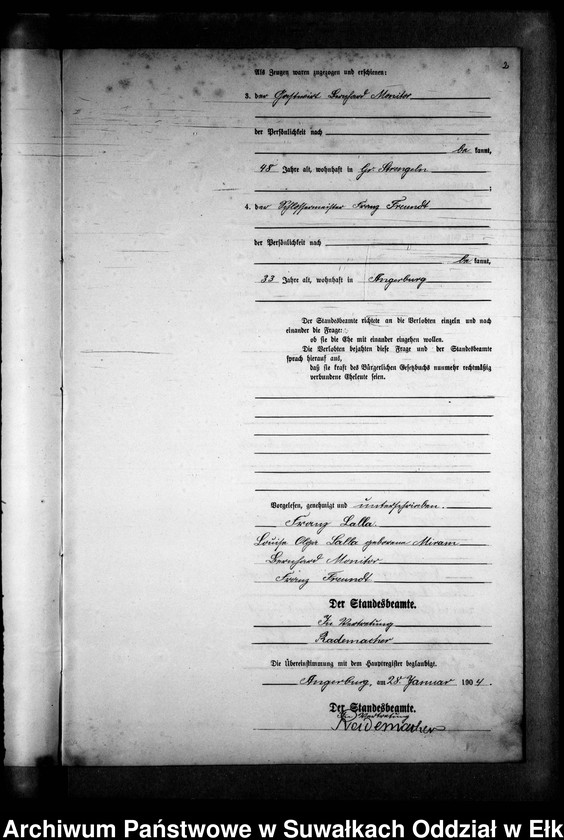 2
Als Zeugen waren zugezogen und erschienen:
3. der Gastwirt Bernhard Monitor
der Persönlichkeit nach
be kannt,
48 Jahre alt, wohnhaft in Gr. Strengeln
;
4. der Schlossermeister Franz Freundt
der Persönlichkeit nach
be kannt,
33 Jahre alt, wohnhaft in Angerburg
Der Standesbeamte richtete an die Verlobten einzeln und nach
einander die Frage:
ob sie die Ehe mit einander eingehen wollen.
Die Verlobten bejahten diese Frage und der Standesbeamte
sprach hierauf aus,
daß sie kraft des Bürgerlichen Gesetzbuchs nunmehr rechtmäßig
verbundene Eheleute seien.
Vorgelesen, genehmigt und unterschrieben.
Franz Lalla
Louise Olga Lalla geborene Miram
Bernhard Monitor
Franz Freundt
Der Standesbeamte.
In Vertretung
Rademacher
Die Übereinstimmung mit dem Hauptregister beglaubigt.
Angerburg, am 28. Januar 1904.
Der Standesbeamte.
In Vertretung
Rademacher
Archiwum Państwowe w Suwałkach Oddział w Ełk